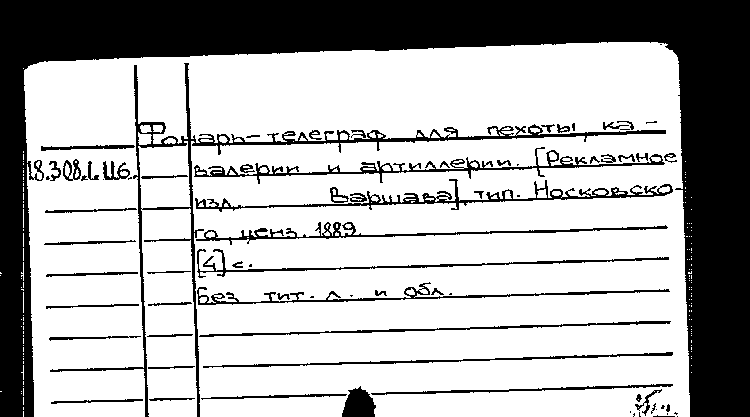 Фонарь-телеграф для пехоты, ка-
18.308.1.116. валерии и артиллерии. [Рекламное
изд. Варшава], тип. Носковско-
го, ценз. 1889.
[4] с.
Без тит. л. и обл.